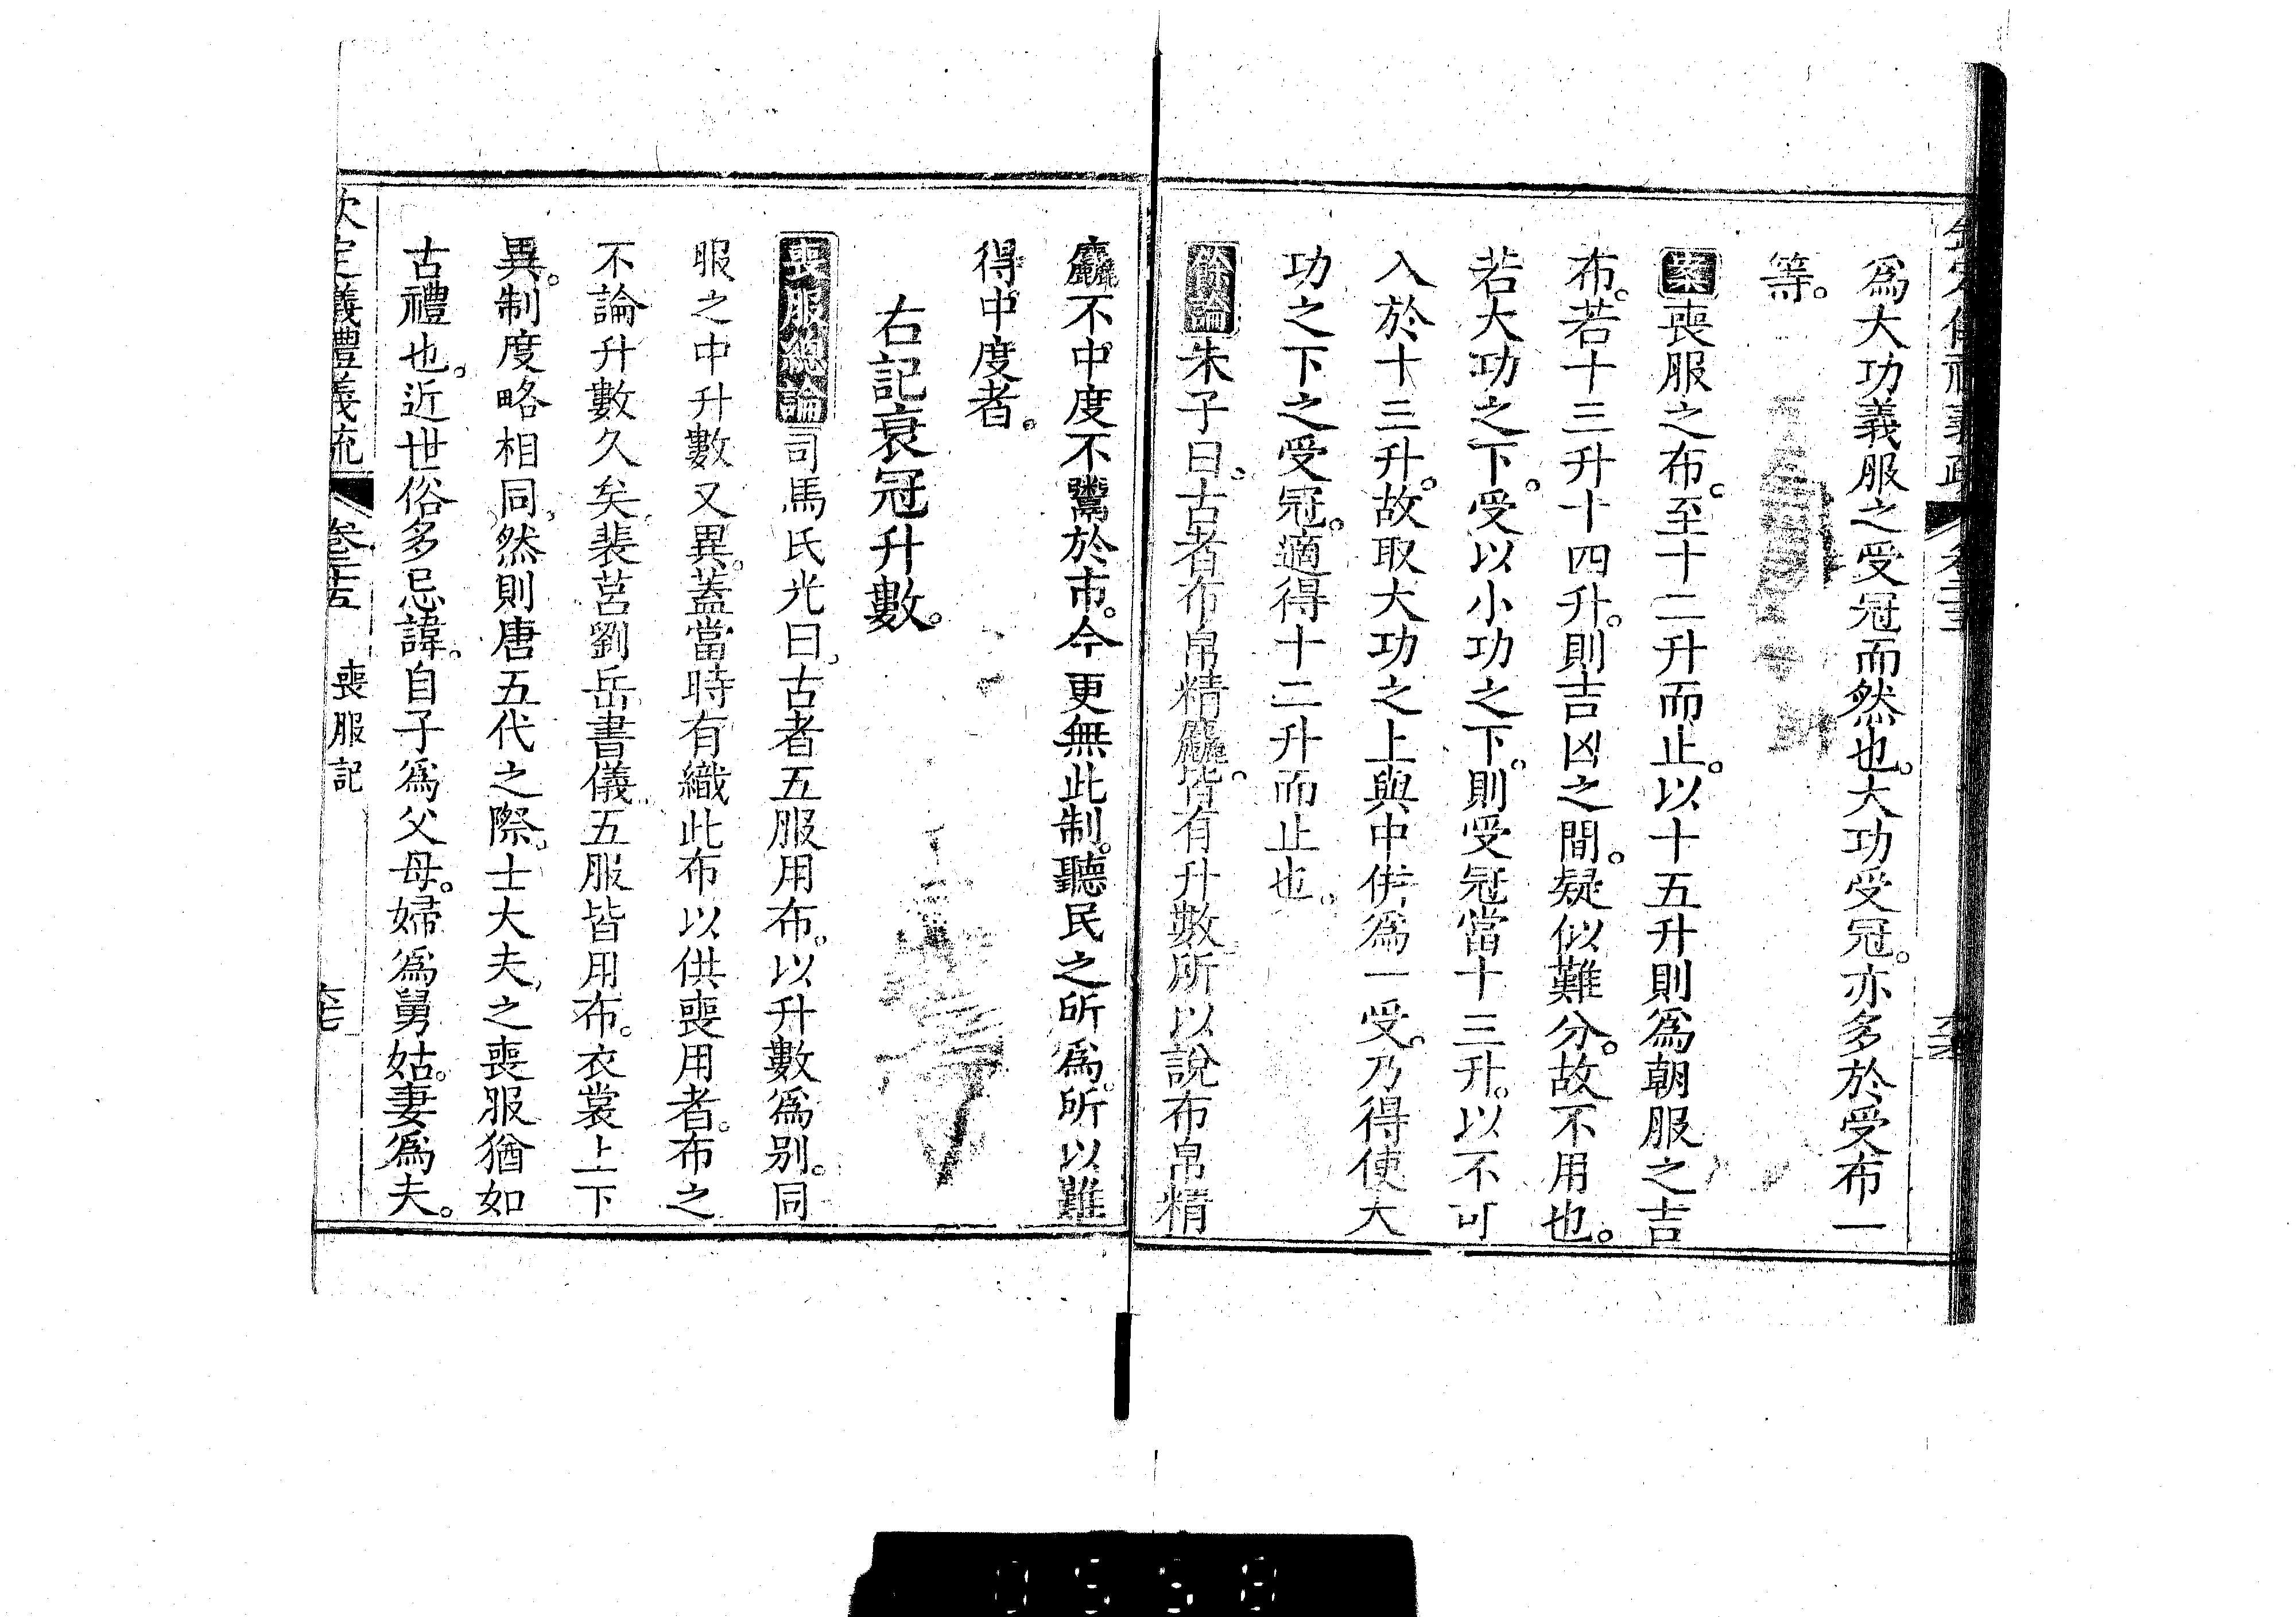 爲大功義服之受冠而然也。大功受冠。亦多於受布一
等。
案喪服之布。至十二升而止。以十五升則爲朝服之吉
布。若十三升十四升。則吉凶之間。疑似難分。故不用也。
若大功之下。受以小功之下。則受冠當十三升。以不可
入於十三升。故取大功之上與中併爲一受。乃得使大
功之下之受冠。適得十二升而止也。
餘論朱子曰。古者布帛精麤。皆有升數。所以說布帛精
麤不中度不鬻於市。今更無此制。聽民之所爲。所以難
得中度者。
右記衰冠升數。
喪服總論司馬氏光曰。古者五服用布。以升數爲别。同
服之中升數又異。蓋當時有織此布以供喪用者。布之
不論升數久矣。裴莒劉岳書儀。五服皆用布。衣裳上下
異。制度略相同。然則唐五代之際。士大夫之喪服猶如
古禮也。近世俗多忌諱。自子爲父母。婦爲舅姑。妻爲夫。
欽定儀禮義疏 卷二十五 喪服記
0558